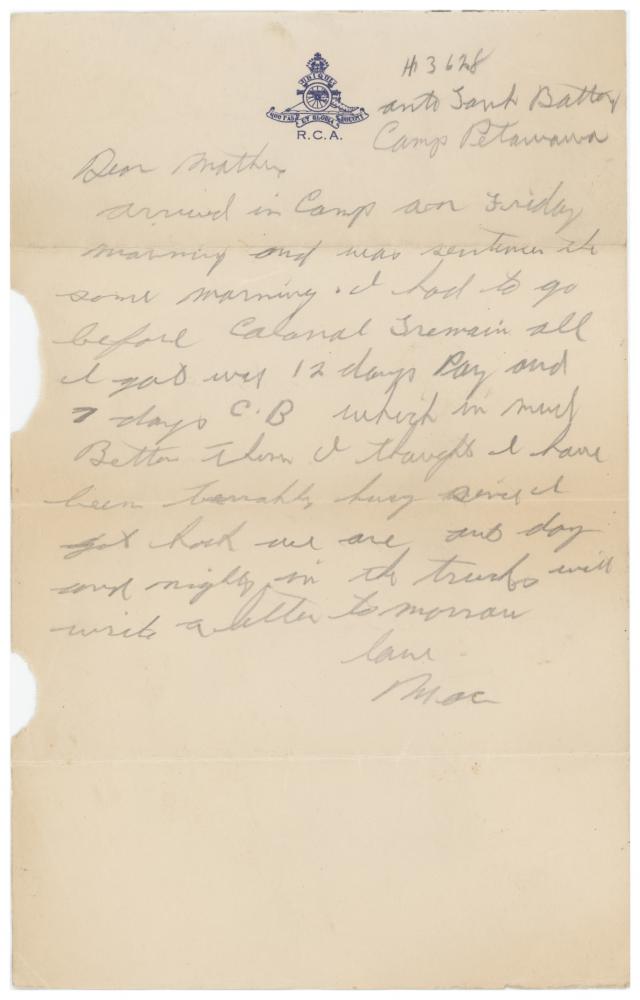 UBIQUE
QUO FAS ET GLORIA DUCUNT
R.C.A.
H 3628
anti Tank Battery
Camp Petawawa
Dear Mother
arrived in Camp on Friday
morning and was sentence the
same morning. I had to go
before Colonal Tremain all
I got was 12 days Pay and
7 days C.B which is much
Better Then I thought I have
been terrably busy since I
got back we are out day
and night in the trucks will
write a letter tomorrow
love
Mac